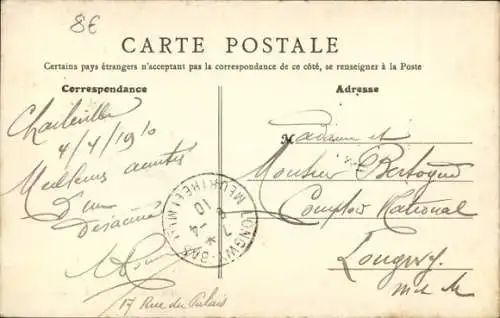 8€
CARTE POSTALE
Certains pays étrangers n'acceptant pas la correspondance de ce côté, se renseignez à la Poste
Correspondance
Charleville
4/4/1910
Meilleures amitiés
D'un
17 Rue du Palais
LONGWY-BAS
MEURTHE ET M
7 -4
10
Adresse
Madame et
Monsieur
Comptoir National
Longwy
M et M